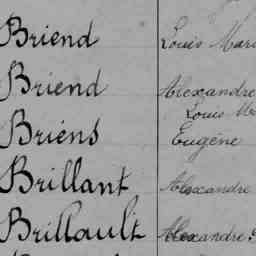 Briend Louis Mari
Briend Alexandre
Louis Ma
Briens Eugène
Brillant Alexandre
Brillault Alexandre